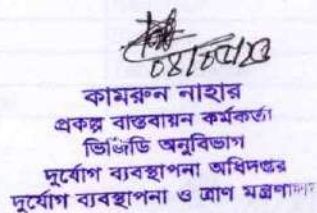 ০৪/০৫/২৩
কামরুন নাহার
প্রকল্প বাস্তবায়ন কর্মকর্তা
ভিজিডি অনুবিভাগ
দুর্যোগ ব্যবস্থাপনা অধিদপ্তর
দুর্যোগ ব্যবস্থাপনা ও ত্রাণ মন্ত্রণালয়